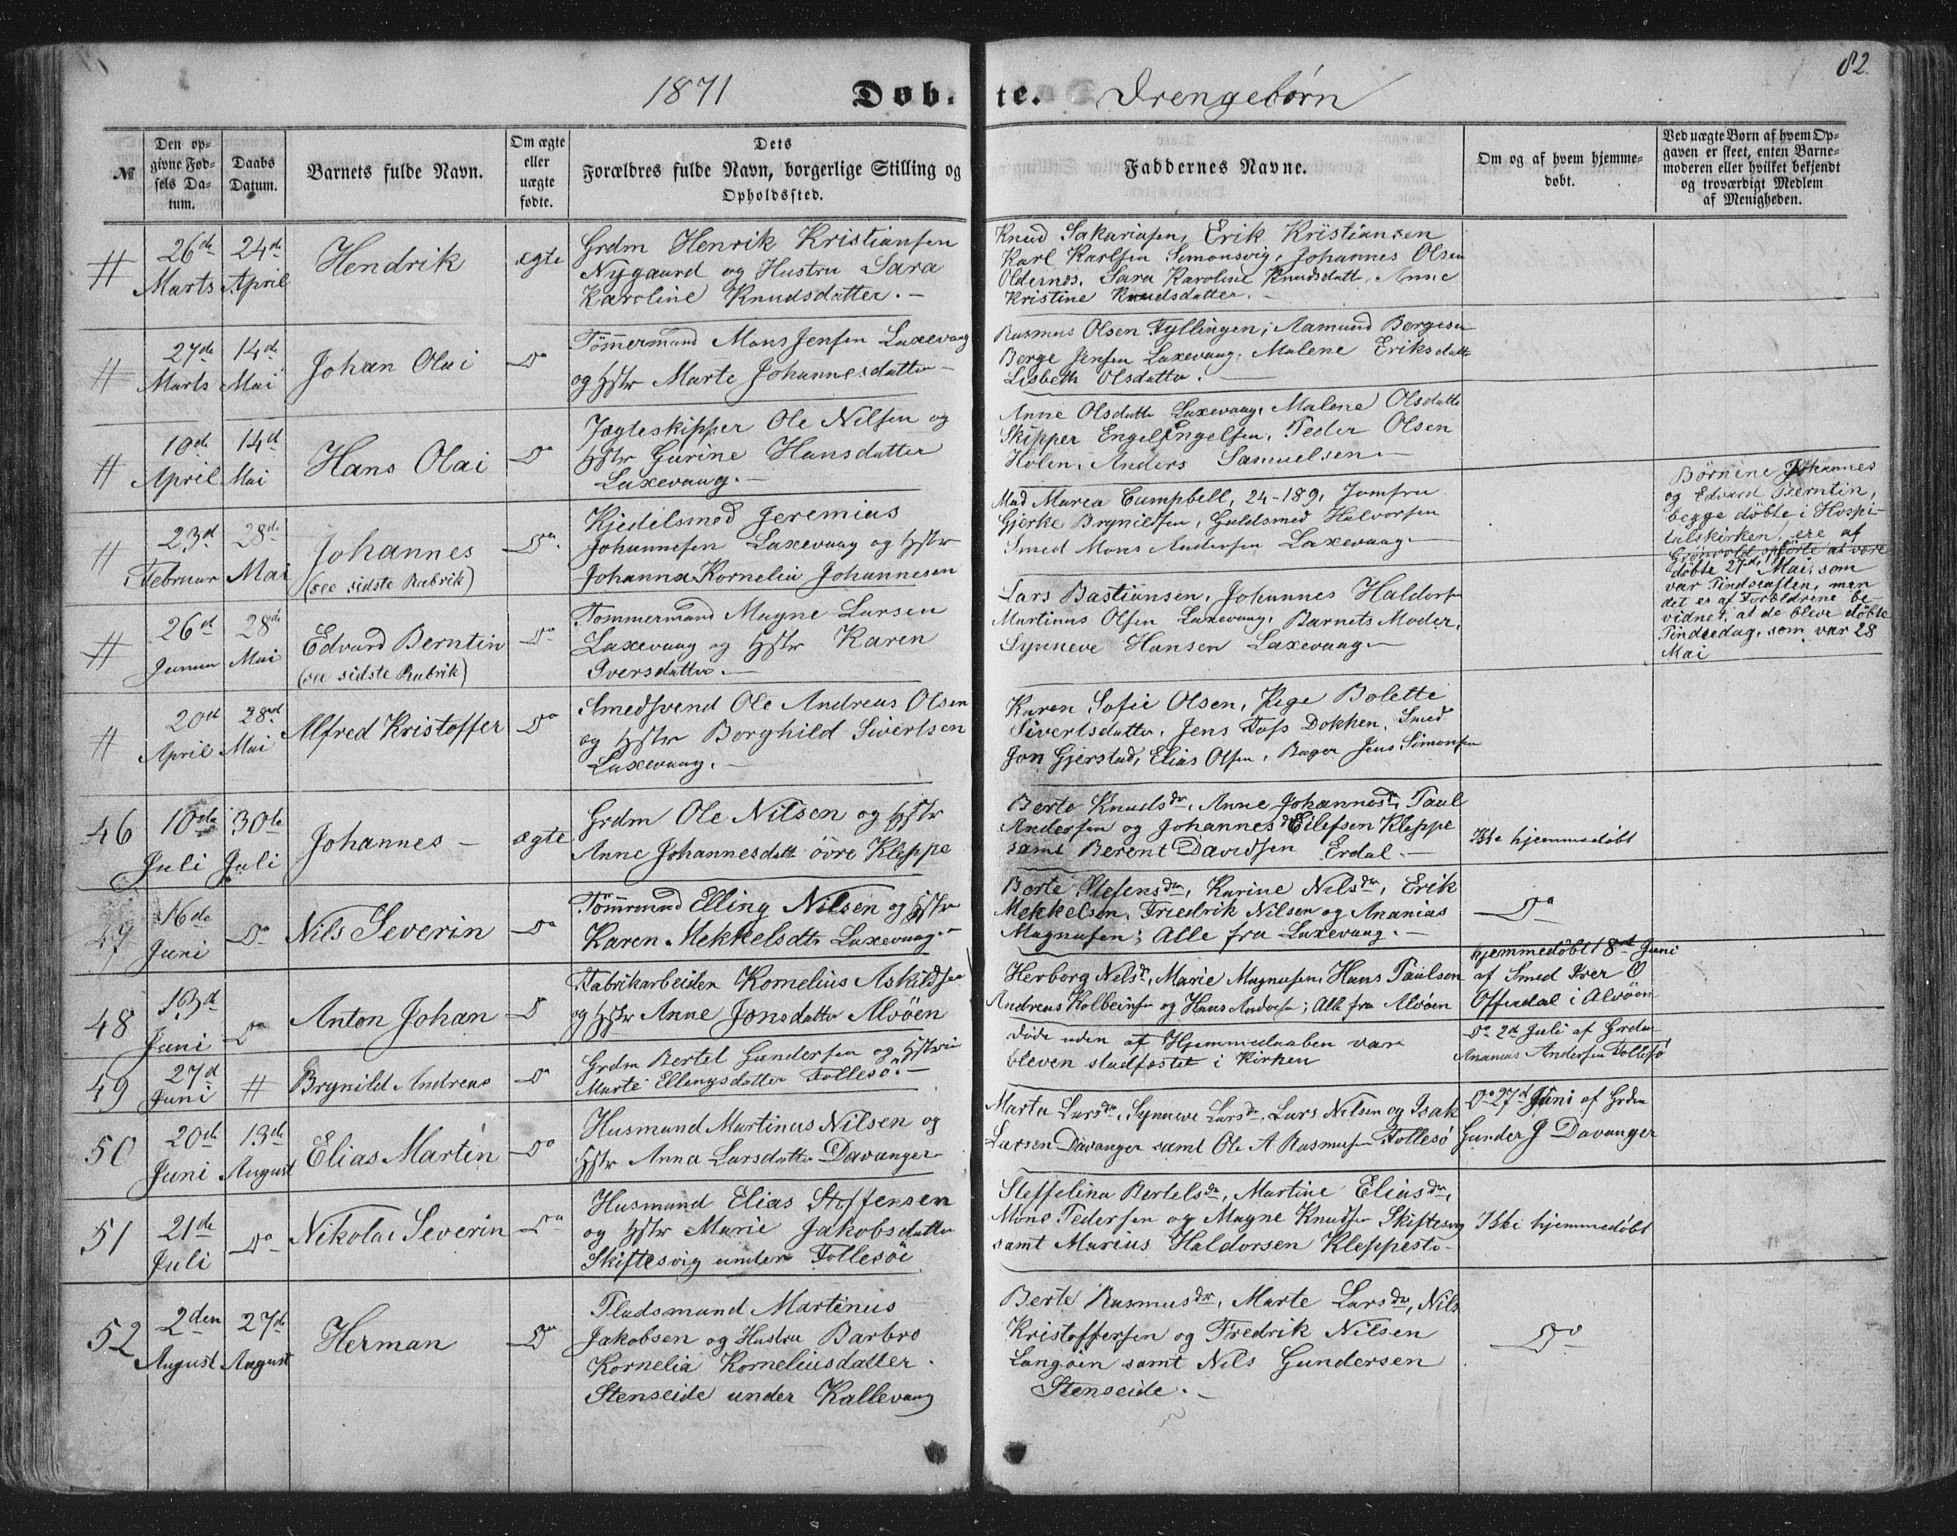 82.
1871 Døb. te. Drengebørn
№
Den opgivne Fødsels Datum.
Daabs Datum.
Barnets fulde Navn.
Om ægte eller uægte fødte.
Dets
Forældres fulde Navn, borgerlige Stilling og
Opholdssted.
Faddernes Navne.
Om og af hvem hjemmedøbt.
Ved uægte Børn af hvem Opgaven er skeet, enten Barnemoderen eller hvilket bekjendt og troværdigt Medlem af Menigheden.
# 26de Marts 24de April Hendrik ægte
Grdm Henrik Kristiansen
Nygaard og Hustru Sara
Karoline Knudsdatter. –
Knud Sakariasen, Erik Kristiansen
Karl Karlsen Simonsvig, Johannes Olsen
Oldernes, Sara Karoline Knudsdatt. Anne
Kristine Knudsdatter. –
# 27de Marts 14de Mai Johan Olai Do
Tømmermand Mons Jensen Laxevaag
og Hstr Marte Johannesdatter –
Rasmus Olsen Fyllingen, Aamund Børgesen
Børge Jensen Laxevaag, Malene Eriksdatt
Lisbeth Olsdatter. –
# 10de April 14de Mai Hans Olai Do
Jagteskipper Ole Nilsen og
Hstr Gurine Hansdatter
Laxevaag. –
Anne Olsdatte Laxevaag, Malene Olsdatte
Skipper Engel Engelsen, Peder Olsen
Holen, Anders Samuelsen –
# 23d Februar 28de Mai Johannes Do
(see sidste Rubrik)
Kjedelsmed Jeremias
Johannesen Laxevaag og Hstr
Johanna Kornelia Johannesen
Mad Marea Campbell, 24-189, Jomfru
Gjerke Brynildsen, Guldsmed Halvorsen
Smed Mons Andersen Laxevaag –
Børnene Johannes
og Edvard Berntin,
begge døbte i Hospitalskirken, ere af
Grønvold opførte at være
døbte 27de Mai, som
var Pindseaften, men
det er af Forældrene bevidnet, at de bleve døbte
Pindsedag, som var 28
Mai
# 26d Januar 28de Mai Edvard Berntin Do
(see sidste Rubrik)
Tømmermand Magne Larsen
Laxevaag og Hstr Karen
Iversdatter. –
Lars Bastiansen, Johannes Haldors
Martinus Olsen Laxevaag, Barnets Moder,
Synneve Hansen Laxevaag –
# 20de April 28de Mai Alfred Kristoffer Do
Smedsvend Ole Andreas Olsen
og Hstr Borghild Sivertsen
Laxevaag. –
Karen Sofie Olsen, Pige Bolette
Sivertsdatter, Jens Foss Dokken, Smed
Jon Gjerstad, Elias Olsen, Bager Jens Simonsen
46 10de Juli 30te Juli Johannes – ægte
Grdm Ole Nilsen og Hstr
Anne Johannesdatt øvre Kleppe
Berte Knudsdr, Anne Johannesdr, Paul
Andersen og Johannes Eilefsen Kleppe
samt Berent Davidsen Erdal –
Ikke hjemmedøbt
47 16de Juni Do Nils Severin Do
Tømrmand Elling Nilsen og Hstr
Karen Mekkelsdtr Laxevaag –
Berte Stefensdr, Karine Nilsdr, Erik
Mekkelsen, Friedrik Nilsen og Ananias
Magnusen; Alle fra Laxevaag. –
Do
48 13d Juni Do Anton Johan Do
Fabrikarbeider Kornelius Askildsen
og Hstr Anne Jonsdatter Alvøen
Herborg Nelsdr, Marie Magnusen, Hans Paulsen
Andreas Kolbeinsen og Hans Andersen; Alle fra Alvøen
Hjemmedøbt 18de Juni
af Smed Iver O
Offerdal i Alvøen
49 27d Juni # Brynild Andreas Do
Grdm Bertel Gundersen og Hstr
Marte Ellingsdatter Follesø. –
døde uden at Hjemmedaaben var
bleven stadfæstet i Kirken
Do 2d Juli af Grdm
Ananias Andersen Follesø
50 20de Juni 13de August Elias Martin Do
Husmand Martinus Nilsen og
Hstr Anna Larsdatter Davanger
Marta Larsdr, Synneve Larsdr, Lars Nilsen og Isak
Larsen Davanger samt Ole A Rasmusen Follesø
Do 27d Juni af Grdm
Gunder J Davanger
51 21de Juli Do Nikolai Severin Do
Husmand Elias Stoffensen
og Hstr Marie Jakobsdatter
Skiftesvig under Follesøe
Steffelina Bertelsdr, Martine Eliasdr,
Mons Pedersen og Magne Knudsen Skiftesvig
samt Marius Haldorsen Kleppestø –
Ikke hjemmedøbt
52 2den August 27de August Herman Do
Pladsmand Martinus
Jakobsen og Hustru Barbro
Kornelia Korneliusdatter.
Stenseide under Kallevaag
Berte Rasmusdr, Marte Larsdr, Nils
Kristoffersen og Fredrik Nilsen
Langøin samt Nils Gundersen
Stenseide. –
Do